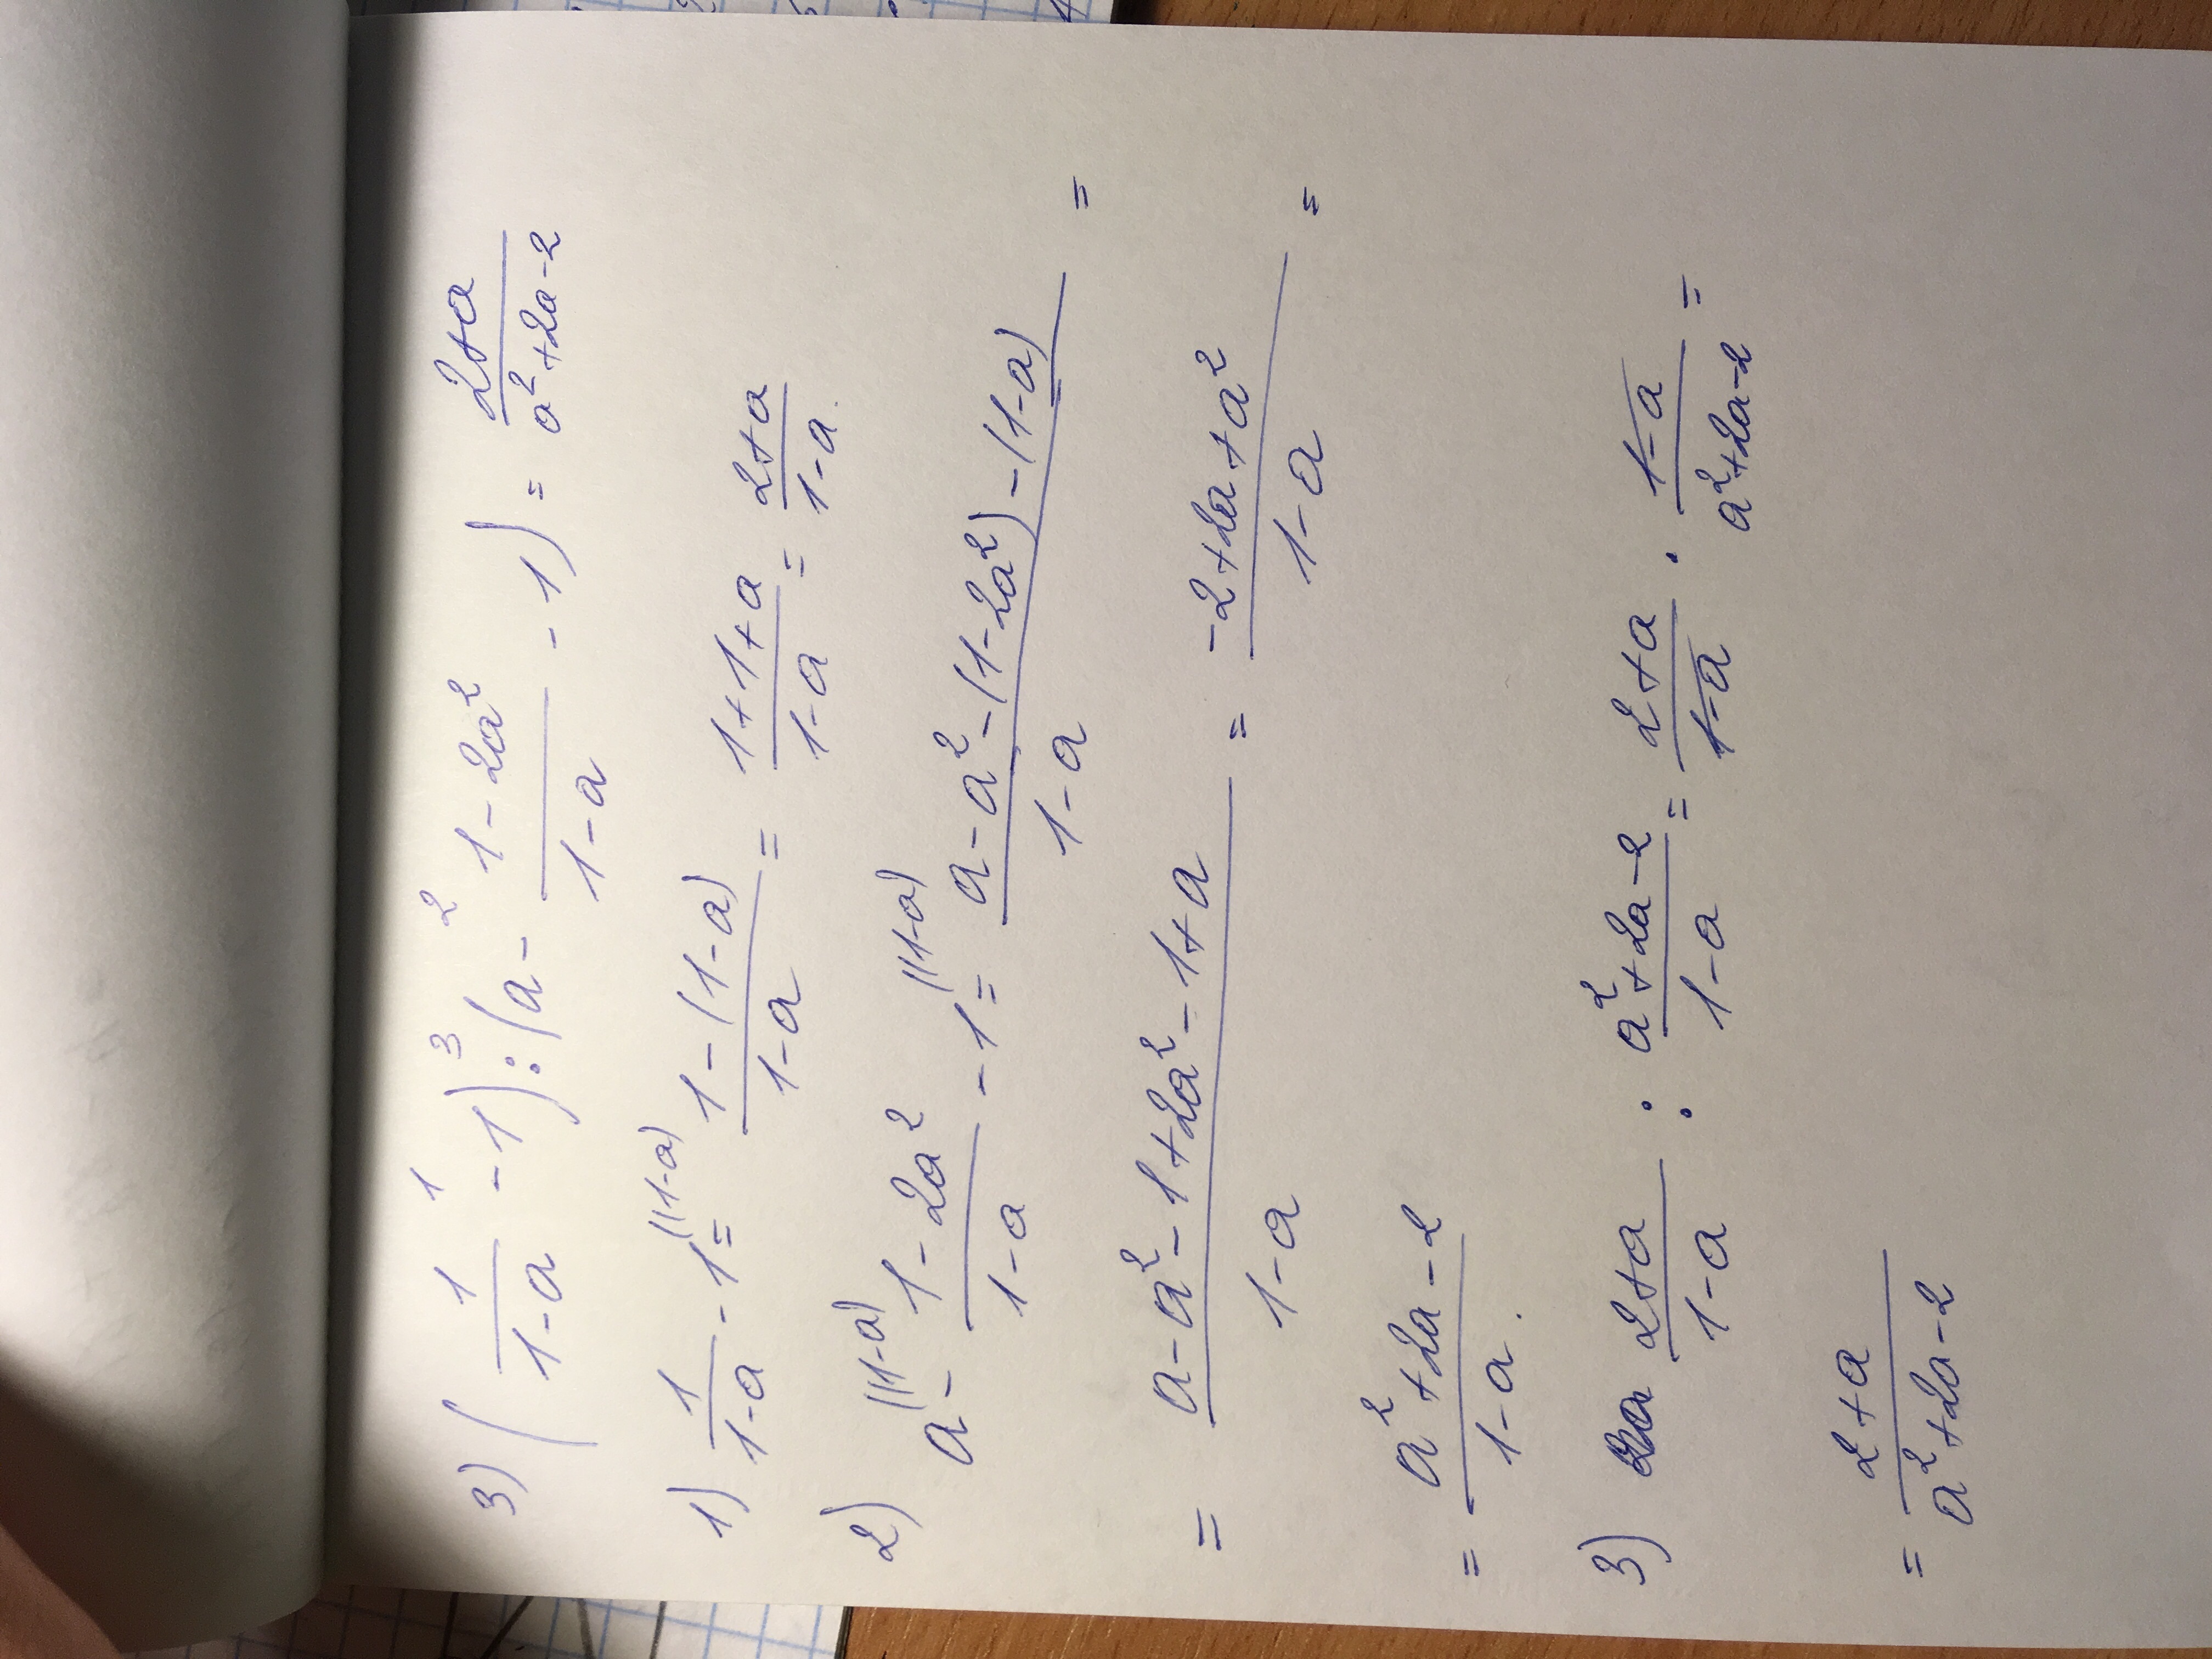 3) (1/(1-a) - 1) : (a - (1-2a²)/(1-a) - 1) = (2+a)/(a²+2a-2)
1 3 2
1) 1/(1-a) - 1 = ⁽⁽¹⁻ᵃ⁾ (1-(1-a))/(1-a) = (1+1+a)/(1-a) = (2+a)/(1-a).
2) a ⁽⁽¹⁻ᵃ⁾ - (1-2a²)/(1-a) - 1 = ⁽⁽¹⁻ᵃ⁾ (a-a²-(1-2a²)-(1-a))/(1-a) =
= (a-a²-1+2a²-1+a)/(1-a) = (-2+2a+a²)/(1-a) =
= (a²+2a-2)/(1-a).
3) (2+a)/(1-a) : (a²+2a-2)/(1-a) = (2+a)/(1-a) · (1-a)/(a²+2a-2) =
= (2+a)/(a²+2a-2)